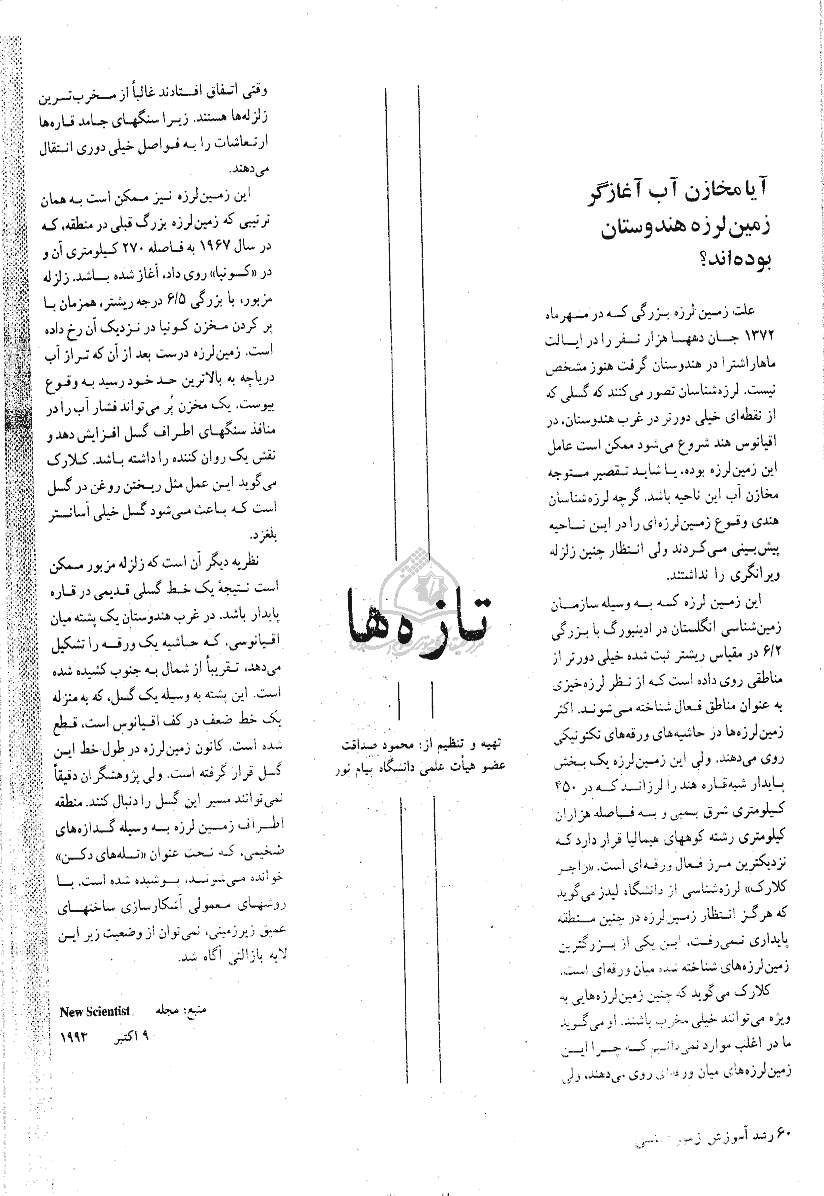 آیا مخازن آب آغازگر
زمین‌لرزه هندوستان
بوده‌اند؟
علت زمین لرزه بزرگی که در مهر ماه
۱۳۷۲ جان دهها هزار نفر را در ایالت
ماهاراشترا در هندوستان گرفت هنوز مشخص
نیست. لرزه‌شناسان تصور می‌کنند که گسلی که
از نقطه‌ای خیلی دورتر در غرب هندوستان، در
اقیانوس هند شروع می‌شود ممکن است عامل
این زمین‌لرزه بوده، یا شاید تقصیر متوجه
مخازن آب این ناحیه باشد. گرچه لرزه‌شناسان
هندی وقوع زمین‌لرزه‌ای را در این ناحیه
پیش‌بینی می‌کردند ولی انتظار چنین زلزله
ویرانگری را نداشتند.
این زمین لرزه که به وسیله سازمان
زمین‌شناسی انگلستان در ادینبورگ با بزرگی
۶/۲ در مقیاس ریشتر ثبت شده خیلی دورتر از
مناطقی روی داده است که از نظر لرزه‌خیزی
به عنوان مناطق فعال شناخته می‌شوند. اکثر
زمین‌لرزه‌ها در حاشیه‌های ورقه‌های تکتونیکی
روی می‌دهند. ولی این زمین‌لرزه یک بخش
پایدار شبه‌قاره هند را لرزاند که در ۴۵۰
کیلومتری شرق بمبی و به فاصله هزاران
کیلومتری رشته کوههای هیمالیا قرار دارد که
نزدیکترین مرز فعال ورقه‌ای است. «راجر
کلارک» لرزه‌شناسی از دانشگاه لیدز می‌گوید
که هرگز انتظار زمین‌لرزه در چنین منطقه
پایداری نمی‌رفت. این یکی از بزرگترین
زمین‌لرزه‌های شناخته شده میان ورقه‌ای است.
کلارک می‌گوید که چنین زمین‌لرزه‌هایی به
ویژه می‌توانند خیلی مخرب باشند. او می‌گوید
ما در اغلب موارد نمی‌دانیم که چرا این
زمین‌لرزه‌های میان ورقه‌ای روی می‌دهند، ولی
تازه‌ها
تهیه و تنظیم از: محمود صداقت
عضو هیأت علمی دانشگاه پیام نور
وقتی اتفاق افتادند غالباً از مخرب‌ترین
زلزله‌ها هستند. زیرا سنگهای جامد قاره‌ها
ارتعاشات را به فواصل خیلی دوری انتقال
می‌دهند.
این زمین‌لرزه نیز ممکن است به همان
ترتیبی که زمین‌لرزه بزرگ قبلی در منطقه، که
در سال ۱۹۶۷ به فاصله ۲۷۰ کیلومتری آن و
در «کونیا» روی داد، آغاز شده باشد. زلزله
مزبور، با بزرگی ۶/۵ درجه ریشتر، همزمان با
پر کردن مخزن کونیا در نزدیک آن رخ داده
است. زمین‌لرزه درست بعد از آن که تراز آب
دریاچه به بالاترین حد خود رسید به وقوع
پیوست. یک مخزن پُر می‌تواند فشار آب را در
منافذ سنگهای اطراف گسل افزایش دهد و
نقش یک روان کننده را داشته باشد. کلارک
می‌گوید این عمل مثل ریختن روغن در گسل
است که باعث می‌شود گسل خیلی آسانتر
بلغزد.
نظریه دیگر آن است که زلزله مزبور ممکن
است نتیجهٔ یک خط گسلی قدیمی در قاره
پایدار باشد. در غرب هندوستان یک پشته میان
اقیانوسی، که حاشیه یک ورقه را تشکیل
می‌دهد، تقریباً از شمال به جنوب کشیده شده
است. این پشته به وسیله یک گسل، که به منزله
یک خط ضعف در کف اقیانوس است، قطع
شده است. کانون زمین‌لرزه در طول خط این
گسل قرار گرفته است. ولی پژوهشگران دقیقاً
نمی‌توانند مسیر این گسل را دنبال کنند. منطقه
اطراف زمین لرزه به وسیله گدازه‌های
ضخیمی، که تحت عنوان «تله‌های دکن»
خوانده می‌شوند، پوشیده شده است. با
روشهای معمولی آشکارسازی ساختهای
عمیق زیرزمینی، نمی‌توان از وضعیت زیر این
لایه بازالتی آگاه شد.
منبع: مجله New Scientist
۹ اکتبر ۱۹۹۳
۶۰ رشد آموزش زمین شناسی